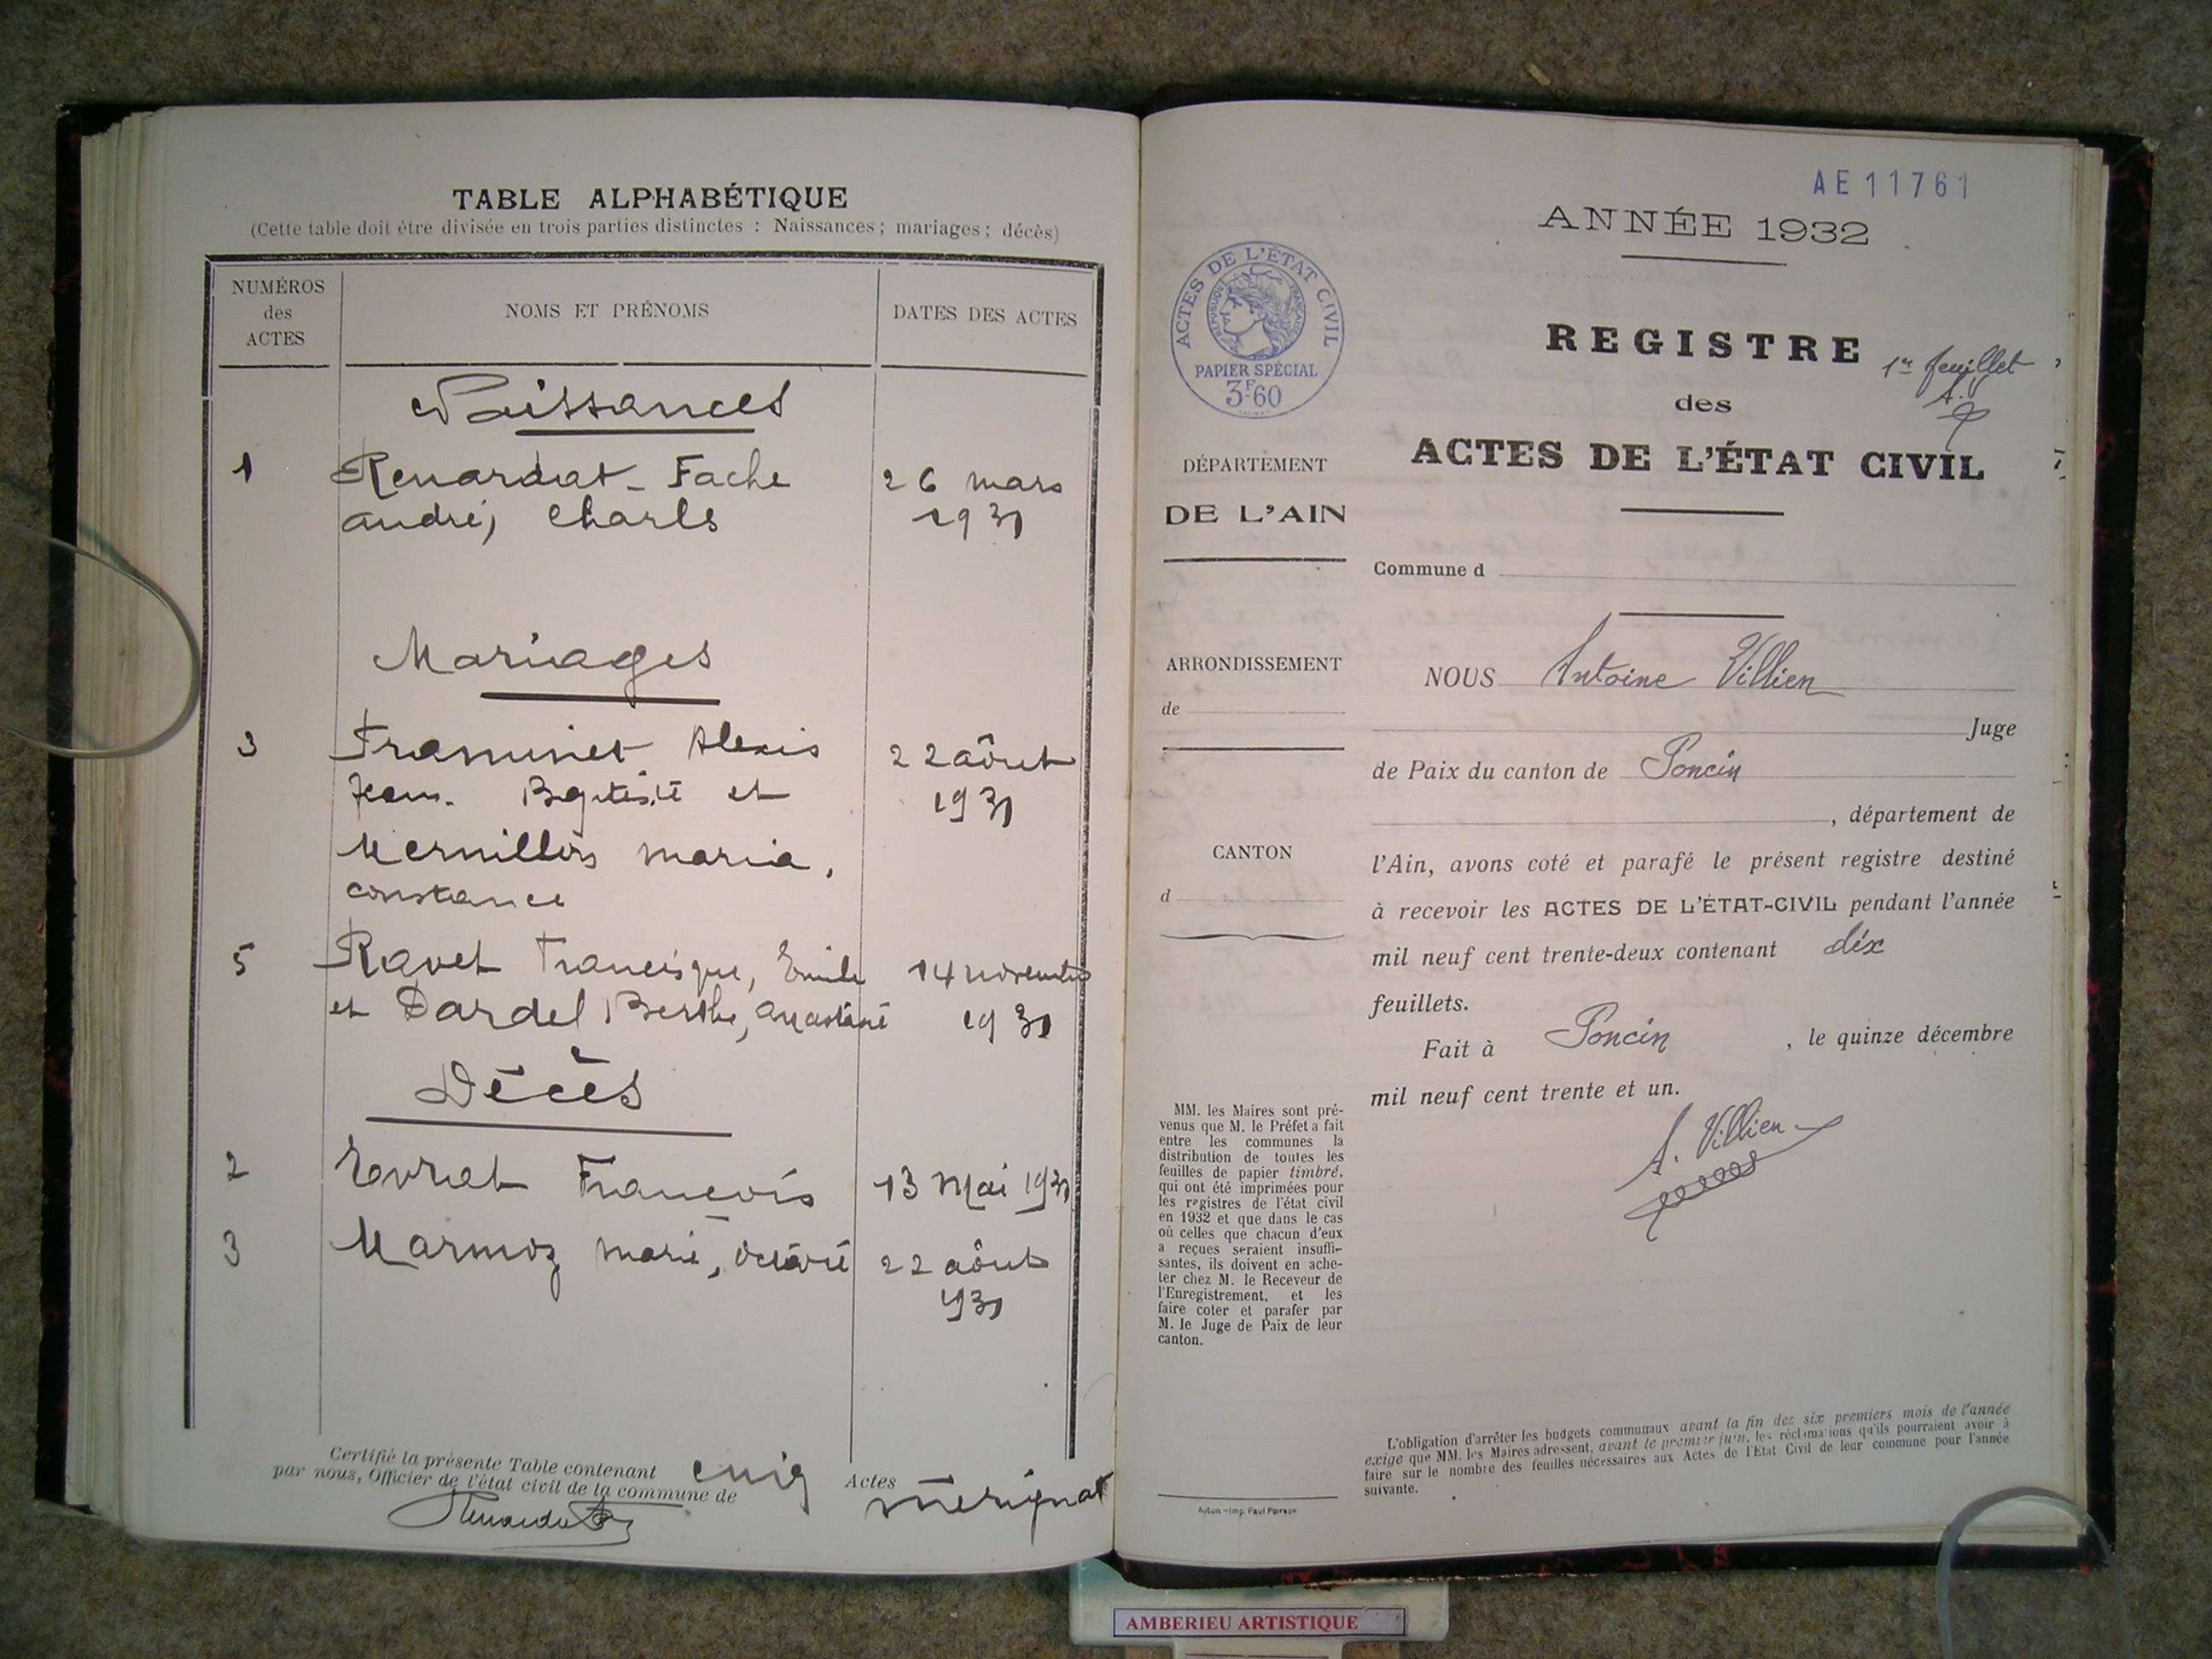 TABLE ALPHABÉTIQUE
(Cette table doit être divisée en trois parties distinctes : Naissances ; mariages ; décès)
NUMÉROS
des
ACTES
NOMS ET PRÉNOMS
DATES DES ACTES
Naissances
1 Renardat - Fache 26 mars
andré, Charles 1931
Mariages
3 Alexis 22 aôut
Jean. Baptiste et 1931
maria,
constance
5 Ravet Francisque, Emile 14 novembre
et Dardel Berthe, 1931
Décès
2 Tavrat François 13 Mai 1931
3 Marmoz marie, Octavie 22 aôut
1931
Certifié la présente Table contenant cinq Actes
par nous, Officier de l'état civil de la commune de Mérignat
AE11761
ANNÉE 1932
ACTES DE L'ÉTAT CIVIL
RÉPUBLIQUE FRANÇAISE
PAPIER SPÉCIAL
3F60
REGISTRE
1er feuillet
des
ACTES DE L'ÉTAT CIVIL
DÉPARTEMENT
DE L'AIN
Commune d
ARRONDISSEMENT
de
CANTON
d
NOUS Antoine Villien
Juge
de Paix du canton de Poncin
, département de
l'Ain, avons coté et parafé le présent registre destiné
à recevoir les ACTES DE L'ÉTAT-CIVIL pendant l'année
mil neuf cent trente-deux contenant dix
feuillets.
Fait à Poncin , le quinze décembre
mil neuf cent trente et un.
A. Villien
MM. les Maires sont pré-
venus que M. le Préfet a fait
entre les communes la
distribution de toutes les
feuilles de papier timbré,
qui ont été imprimées pour
les registres de l'état civil
en 1932 et que dans le cas
où celles que chacun d'eux
a reçues seraient insuffi-
santes, ils doivent en ache-
ter chez M. le Receveur de
l'Enregistrement, et les
faire coter et parafer par
M. le Juge de Paix de leur
canton.
L'obligation d'arrêter les budgets communaux avant la fin des six premiers mois de l'année
exige que MM. les Maires adressent, avant le premier juin, les réclamations qu'ils pourraient avoir à
faire sur le nombre des feuilles nécessaires aux Actes de l'Etat Civil de leur commune pour l'année
suivante.
Autun - Imp. Paul Poirson
AMBERIEU ARTISTIQUE